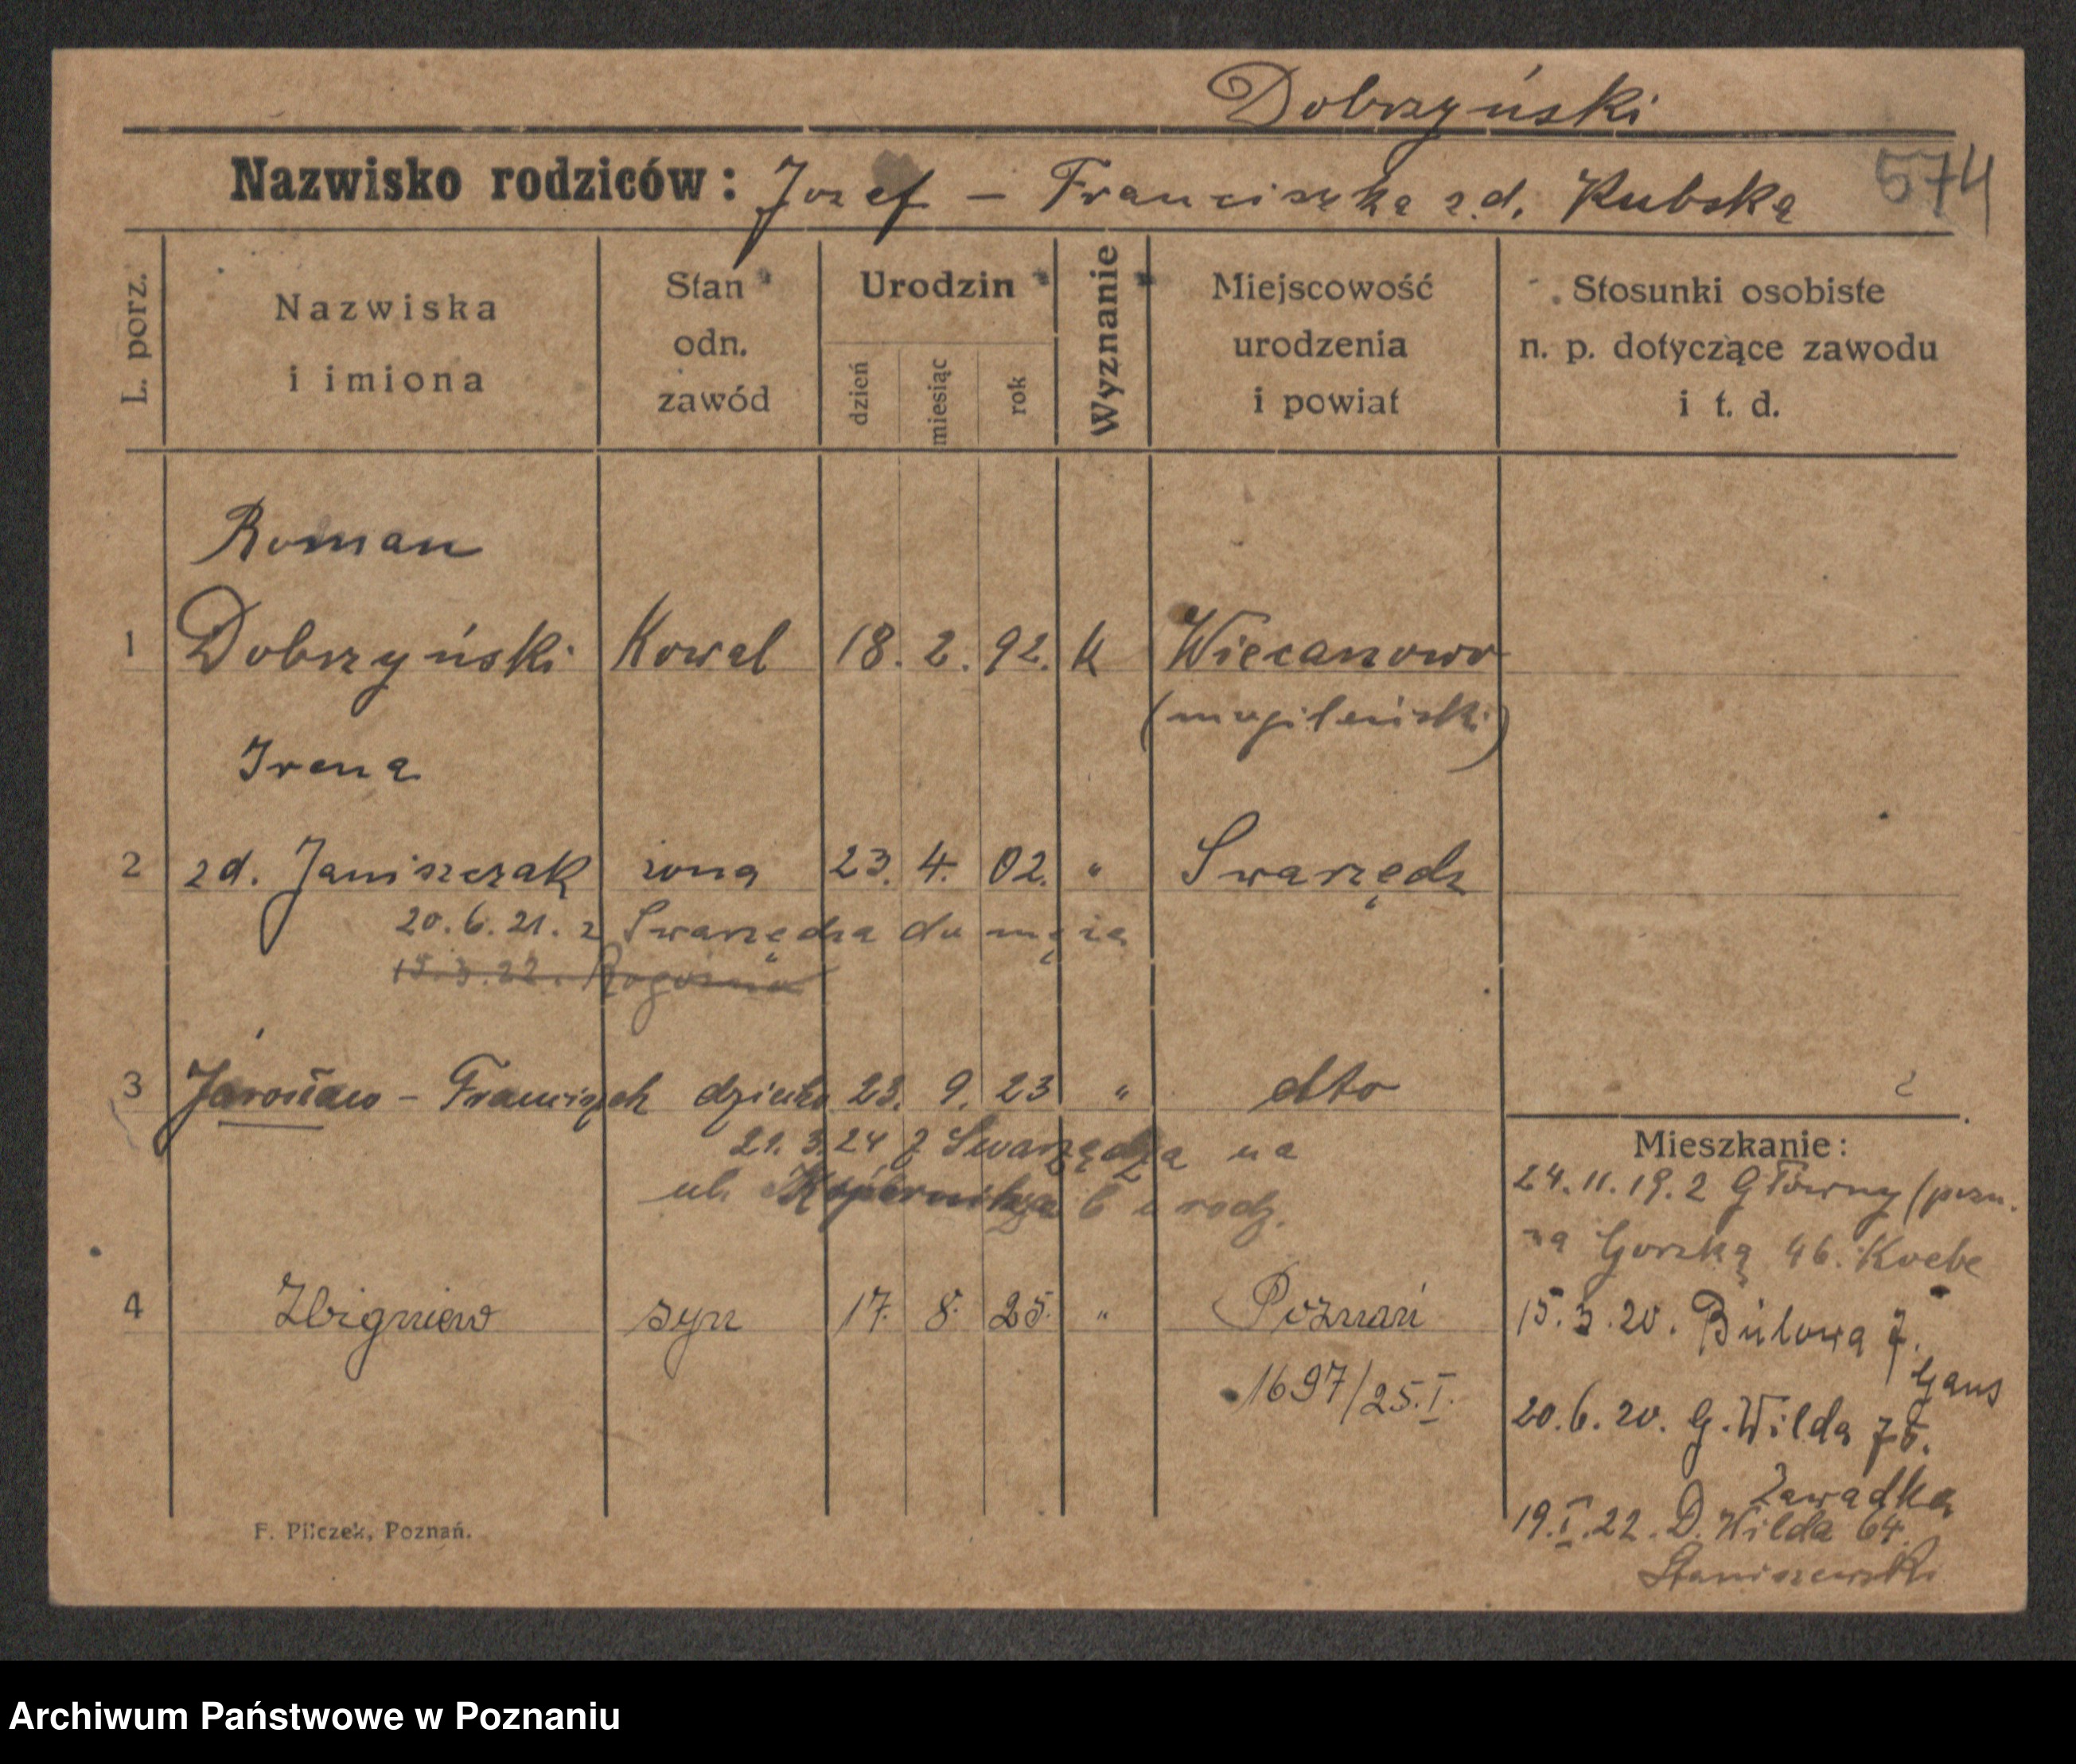 Dobrzyński
Nazwisko rodziców: Jozef – Franciszka zd. Kubska
574
L. porz.
Nazwiska
i imiona
Stan
odn.
zawód
Urodzin
dzień
miesiąc
rok
Wyznanie
Miejscowość
urodzenia
i powiat
Stosunki osobiste
n. p. dotyczące zawodu
i t. d.
Roman
1 Dobrzyński Kowal 18. 2. 92. k Wiecanowo
(mogileński)
Irena
2 zd. Janiszczak żona 23. 4. 02. " Swarzędz
20.6.21. z Swarzędza do męża
15.3.22. Rogoźno
3 Jarosław – Franciszek dziecko 23. 9. 23 " dto
21.3.24 z Swarzędza na
ul. Kopernika 6 u rodz.
4 Zbigniew syn 17. 8. 25. " Poznań
1697/25.I.
Mieszkanie:
24.11.19. z Główny (pozn.
na Gorską 46. Koebe
15.3.20. Bülowa 7.
Gans
20.6.20. G. Wilda 75.
Zawadka
19.I.22. D. Wilda 64.
Staniszewski
F. Pilczek, Poznań.
Archiwum Państwowe w Poznaniu